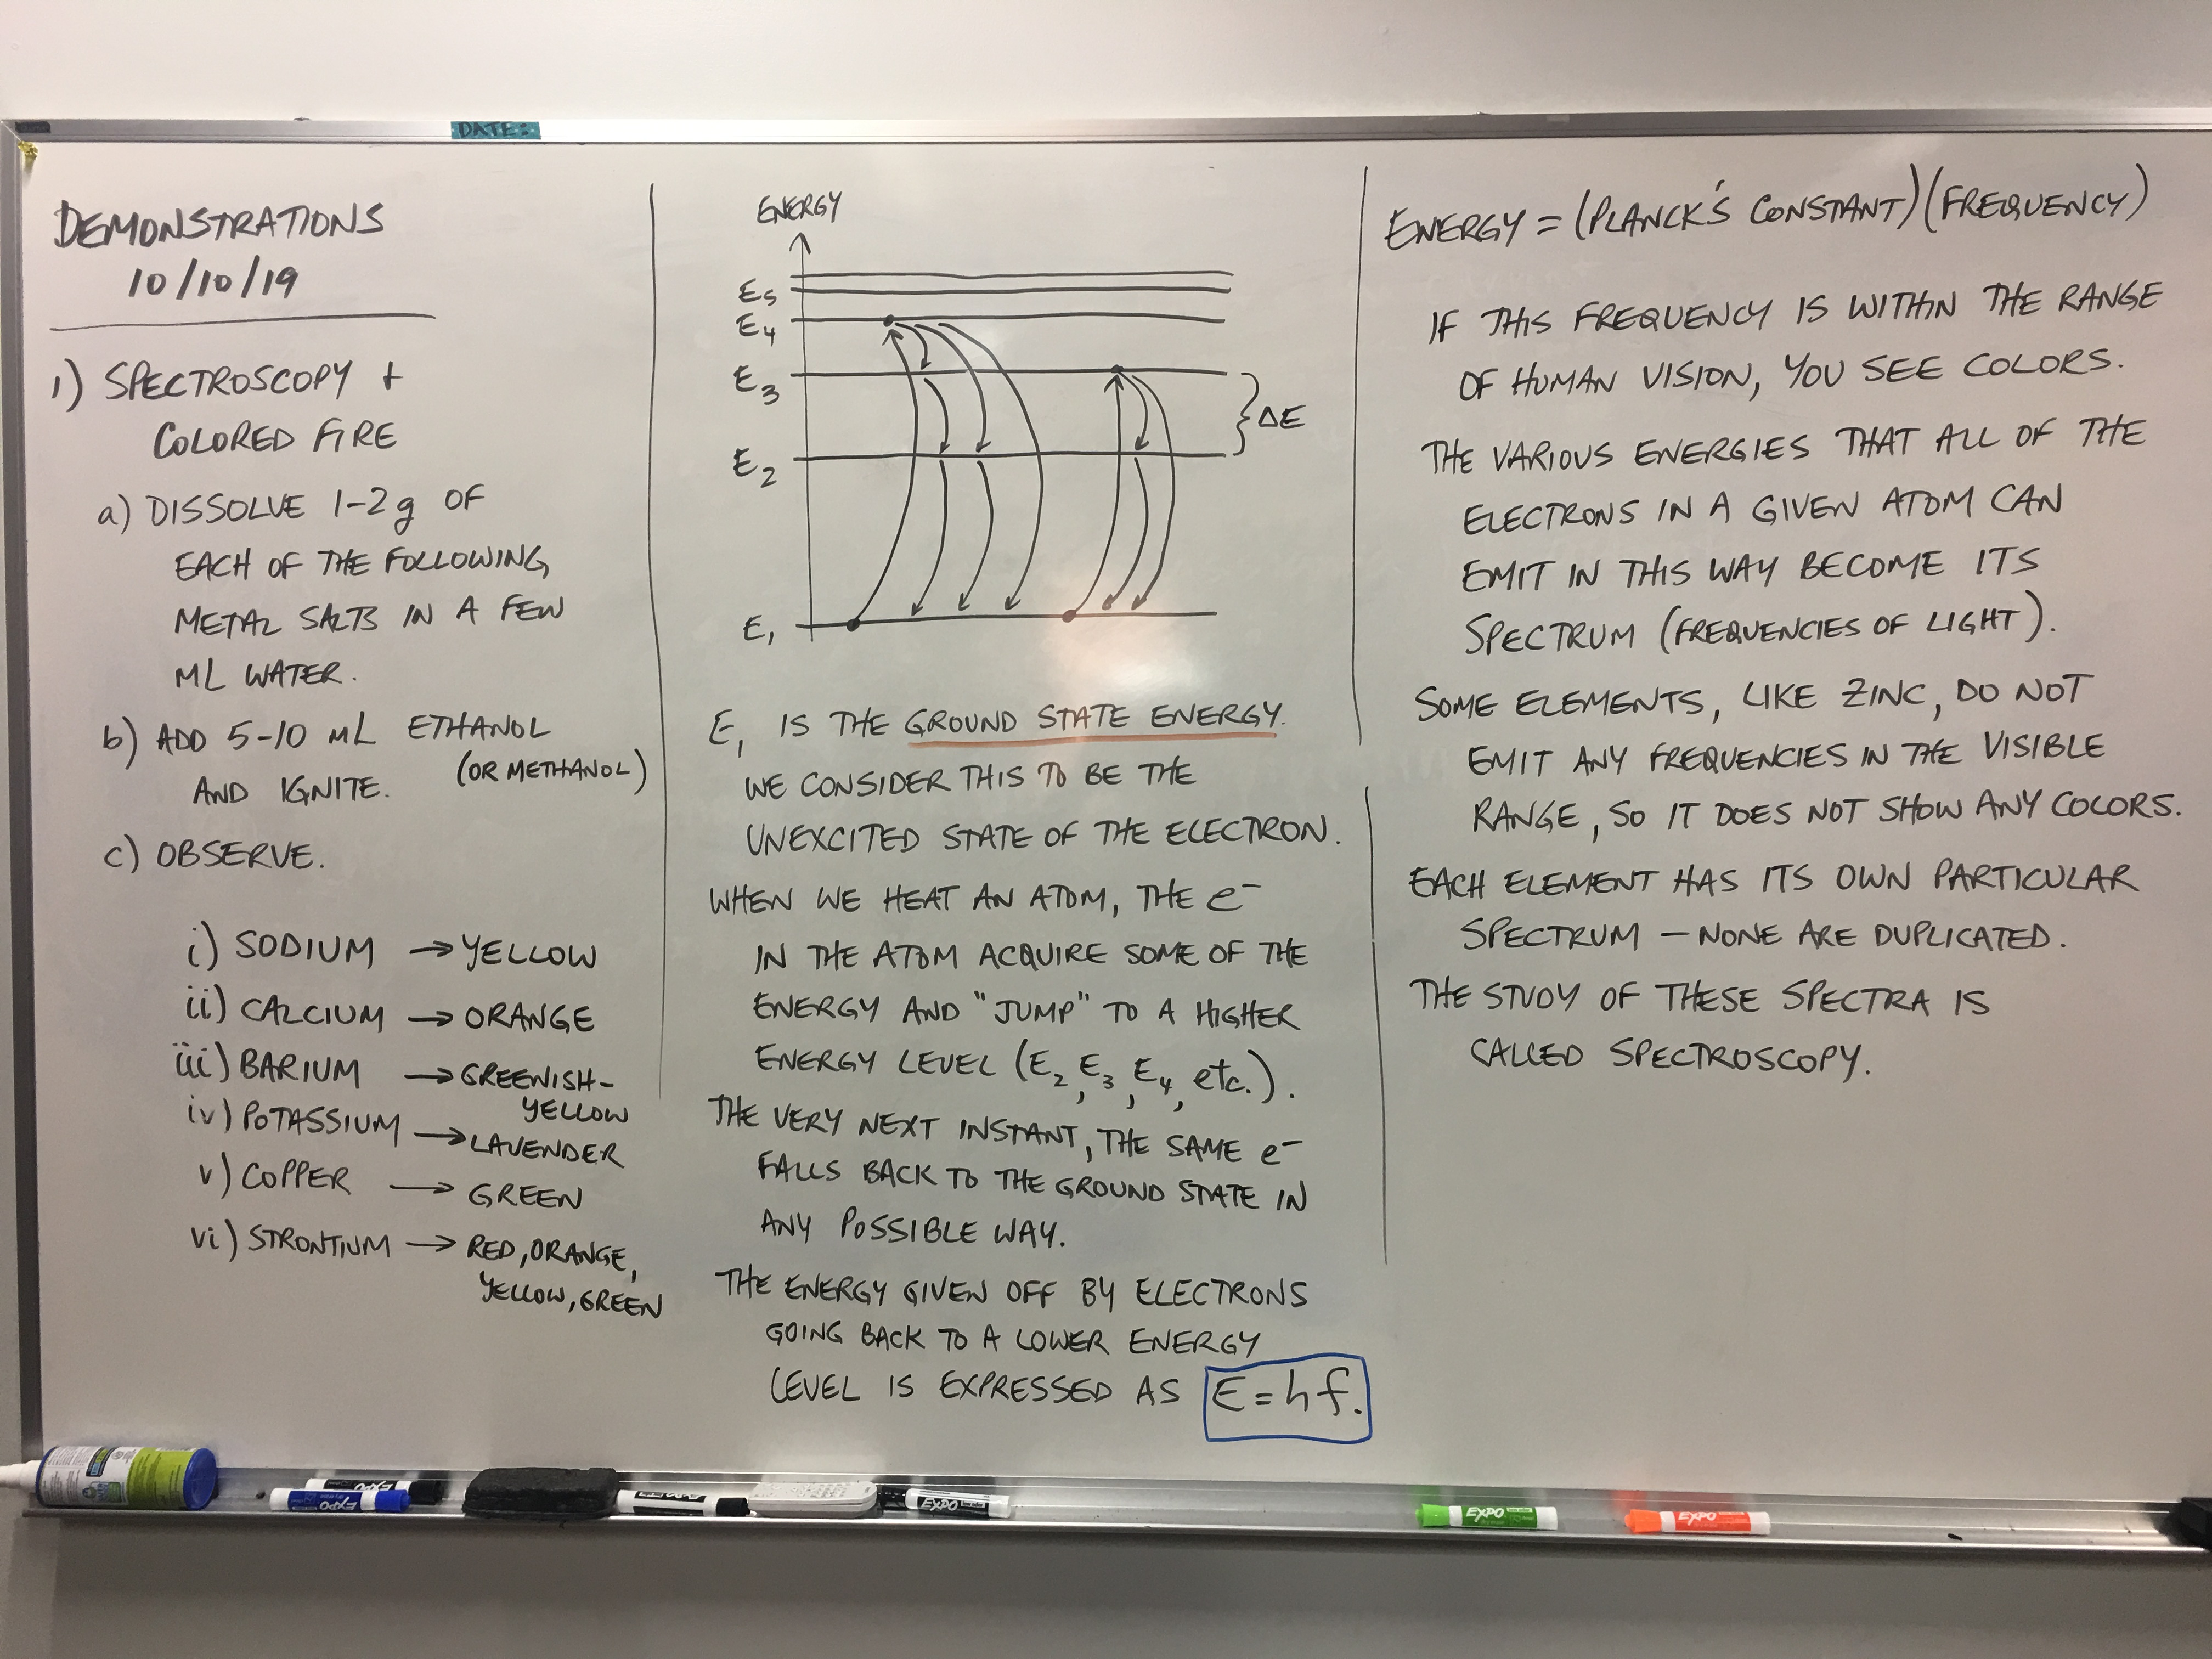 DATE:
DEMONSTRATIONS
10/10/19
1) SPECTROSCOPY +
COLORED FIRE
a) DISSOLVE 1-2g OF
EACH OF THE FOLLOWING
METAL SALTS IN A FEW
ML WATER.
b) ADD 5-10 ML ETHANOL
(OR METHANOL)
AND IGNITE.
c) OBSERVE.
i) SODIUM → YELLOW
ii) CALCIUM → ORANGE
iii) BARIUM → GREENISH-
YELLOW
iv) POTASSIUM → LAVENDER
v) COPPER → GREEN
vi) STRONTIUM → RED, ORANGE,
YELLOW, GREEN
ENERGY
E5
E4
E3
ΔE
E2
E1
E1 IS THE GROUND STATE ENERGY.
WE CONSIDER THIS TO BE THE
UNEXCITED STATE OF THE ELECTRON.
WHEN WE HEAT AN ATOM, THE e⁻
IN THE ATOM ACQUIRE SOME OF THE
ENERGY AND "JUMP" TO A HIGHER
ENERGY LEVEL (E2, E3, E4, etc.).
THE VERY NEXT INSTANT, THE SAME e⁻
FALLS BACK TO THE GROUND STATE IN
ANY POSSIBLE WAY.
THE ENERGY GIVEN OFF BY ELECTRONS
GOING BACK TO A LOWER ENERGY
LEVEL IS EXPRESSED AS E=hf.
ENERGY = (PLANCK'S CONSTANT)(FREQUENCY)
IF THIS FREQUENCY IS WITHIN THE RANGE
OF HUMAN VISION, YOU SEE COLORS.
THE VARIOUS ENERGIES THAT ALL OF THE
ELECTRONS IN A GIVEN ATOM CAN
EMIT IN THIS WAY BECOME ITS
SPECTRUM (FREQUENCIES OF LIGHT).
SOME ELEMENTS, LIKE ZINC, DO NOT
EMIT ANY FREQUENCIES IN THE VISIBLE
RANGE, SO IT DOES NOT SHOW ANY COLORS.
EACH ELEMENT HAS ITS OWN PARTICULAR
SPECTRUM - NONE ARE DUPLICATED.
THE STUDY OF THESE SPECTRA IS
CALLED SPECTROSCOPY.
EXPO
EXPO
EXPO
EXPO
EXPO
EXPO